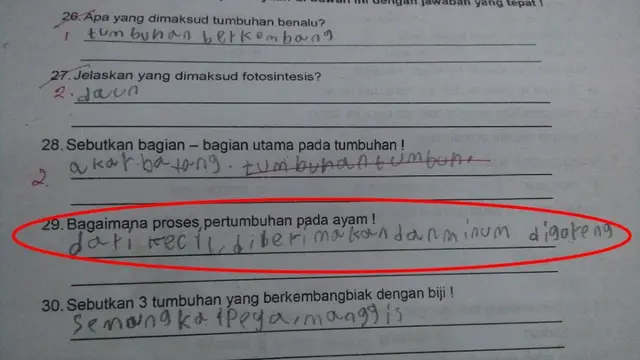 di bawah ini dengan jawaban yang tepat !
26. Apa yang dimaksud tumbuhan benalu?
1 tumbuhan berkembang
27. Jelaskan yang dimaksud fotosintesis?
2. daun
28. Sebutkan bagian – bagian utama pada tumbuhan !
akar. batang. tumbuhan tumbuh.
2.
29. Bagaimana proses pertumbuhan pada ayam !
dari kecil, diberi makan dan minum digoreng
30. Sebutkan 3 tumbuhan yang berkembangbiak dengan biji !
semangka, Pepaya, manggis